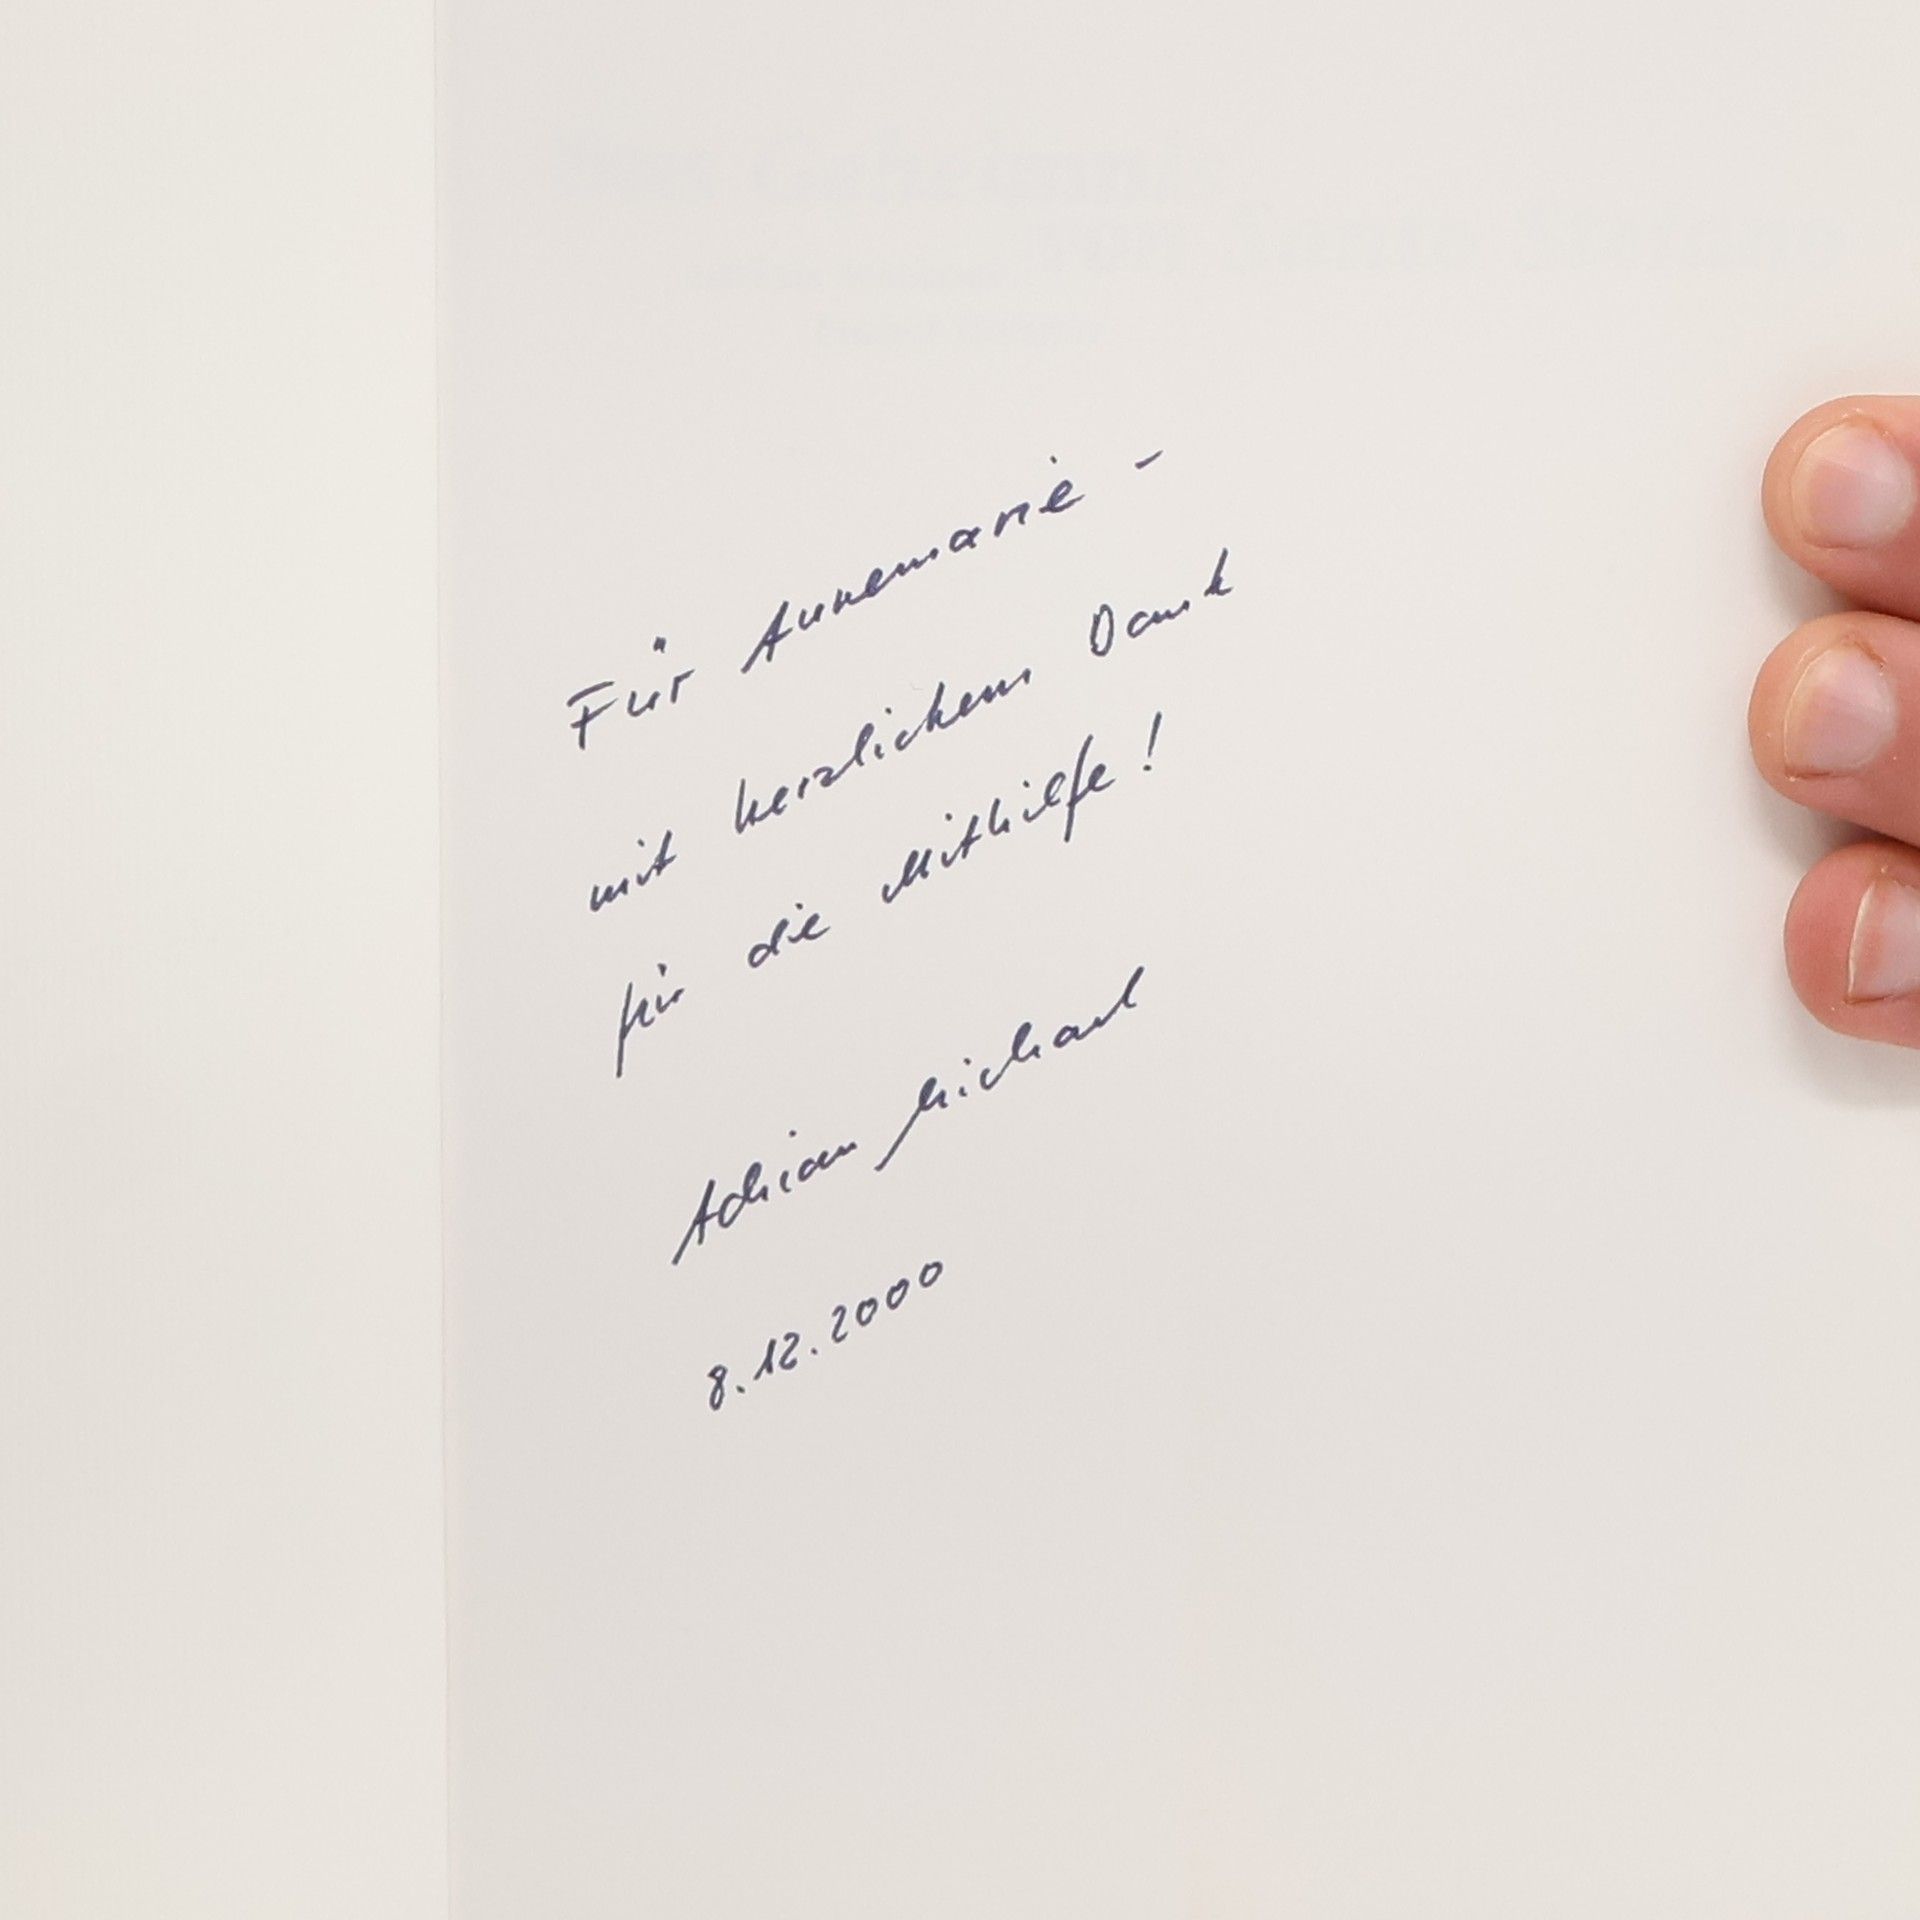 Für Annemarie –
mit herzlichem Dank
für die Mithilfe!
Adrian Michael
8.12.2000